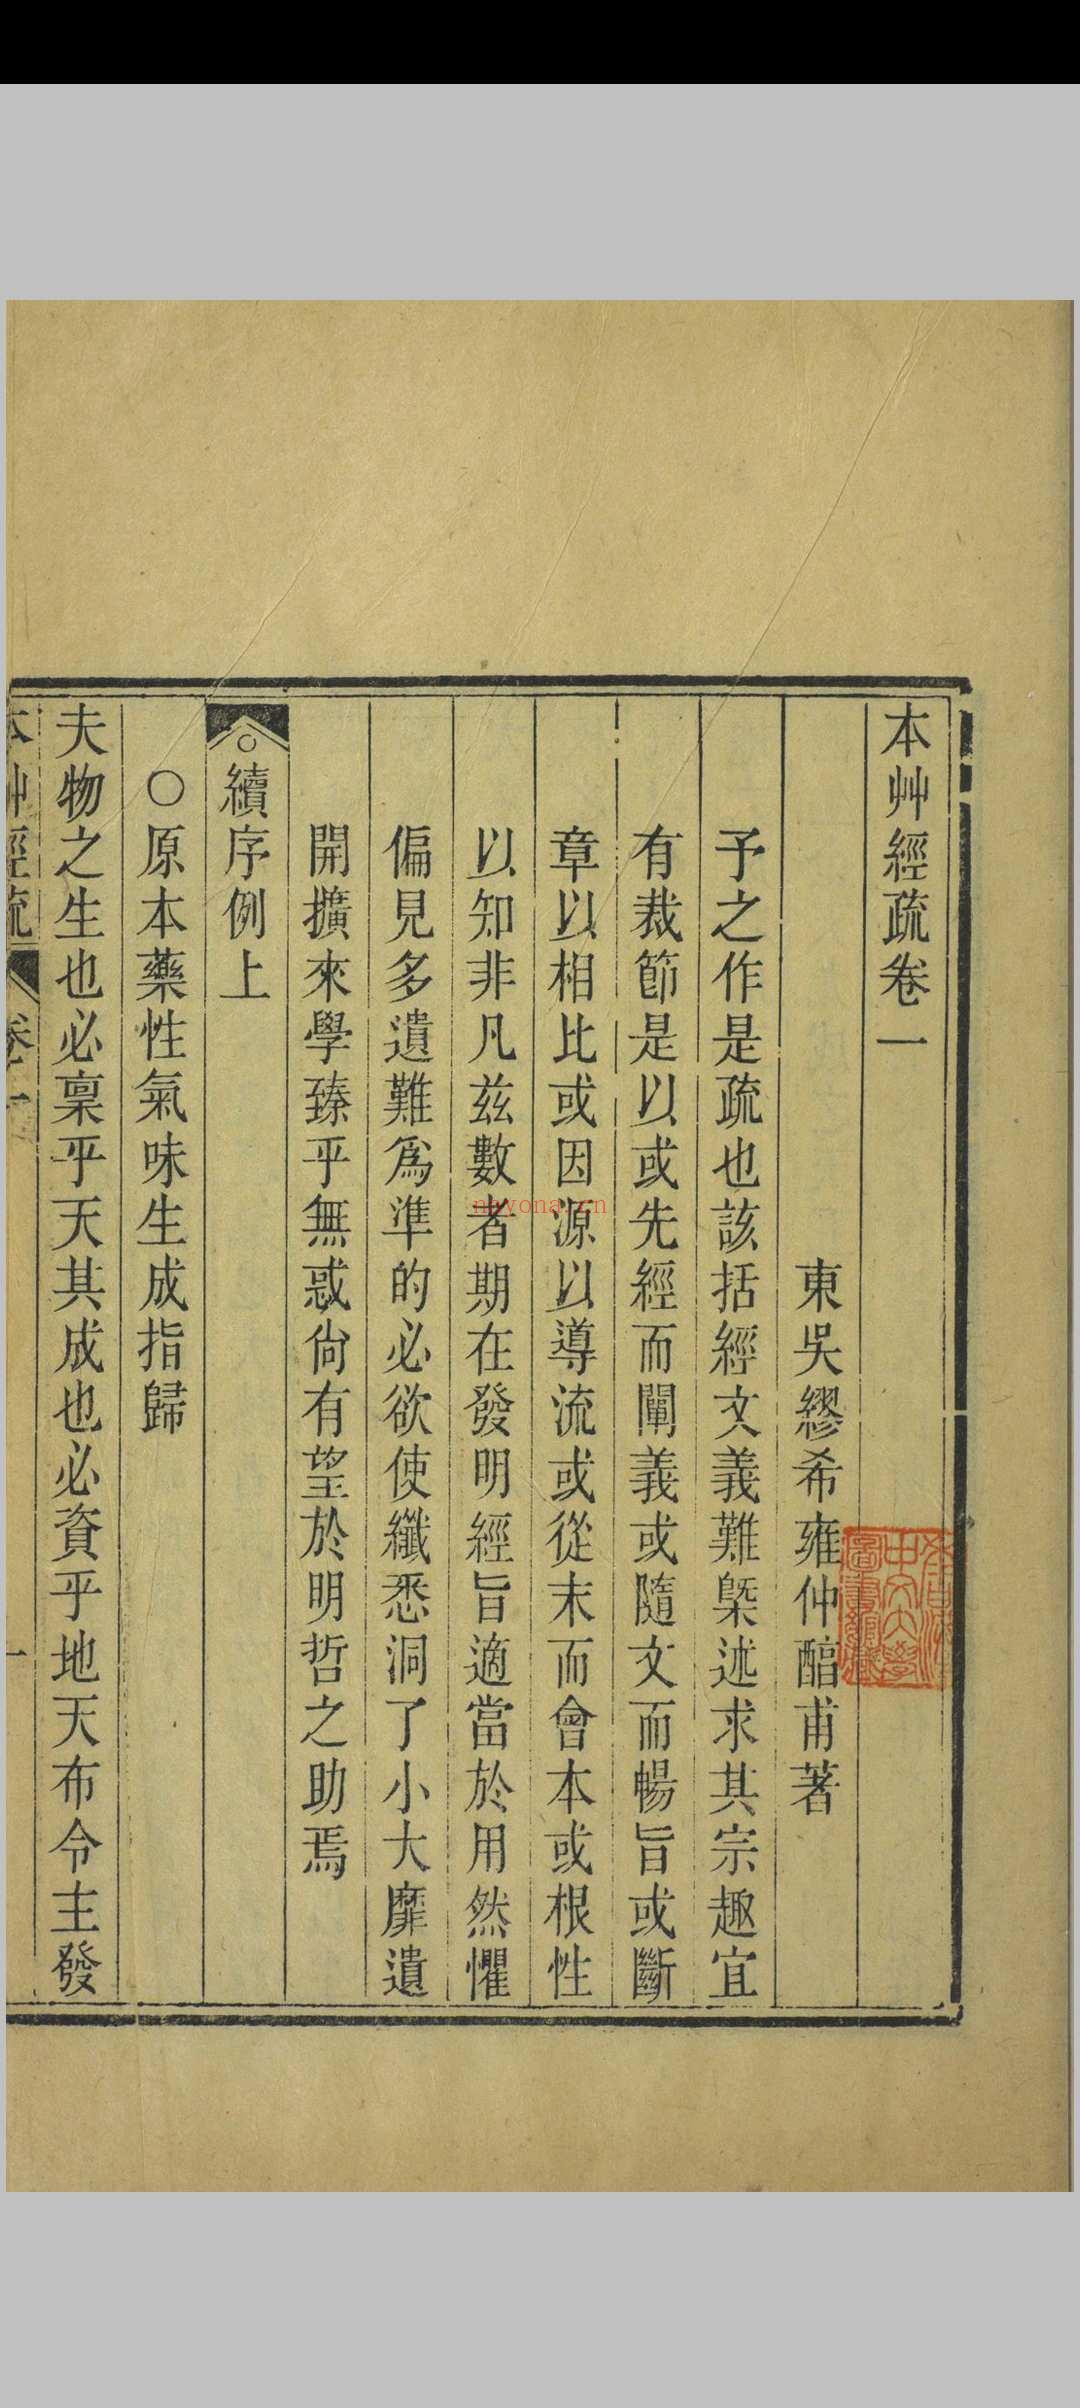 本艸經疏卷一
東吳繆希雍仲醕甫著
予之作是疏也該括經文義難槩述求其宗趣宜
有裁節是以或先經而闡義或隨文而暢旨或斷
章以相比或因源以導流或從末而會本或根性
以知非凡兹數者期在發明經旨適當於用然懼
偏見多遺難爲準的必欲使纖悉洞了小大靡遺
開擴來學臻乎無惑尙有望於明哲之助焉
○續序例上
○原本藥性氣味生成指歸
夫物之生也必稟乎天其成也必資乎地天布令主發
本艸經疏 卷一 一
navona.cn